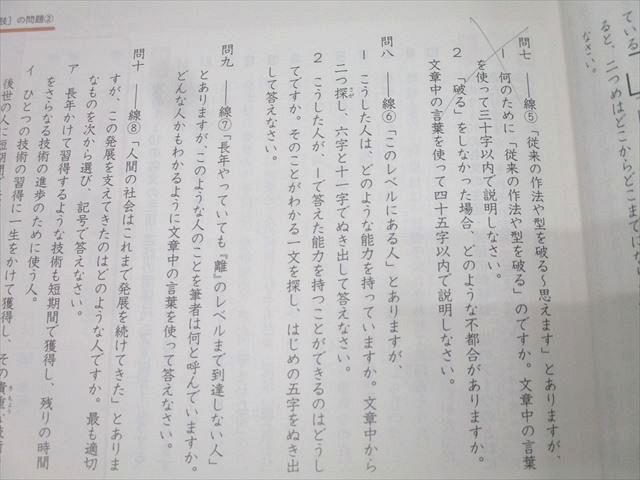 肢］の問題②
ている
ると、二つめはどこからどこまでにな
なさい。
問七 ――線⑤「従来の作法や型を破る〜思えます」とありますが、
1 何のために「従来の作法や型を破る」のですか。文章中の言葉
を使って三十字以内で説明しなさい。
2 「破る」をしなかった場合、どのような不都合がありますか。
文章中の言葉を使って四十五字以内で説明しなさい。
問八 ――線⑥「このレベルにある人」とありますが、
1 こうした人は、どのような能力を持っていますか。文章中から
二つ探し、六字と十一字でぬき出して答えなさい。
2 こうした人が、1で答えた能力を持つことができるのはどうし
てですか。そのことがわかる一文を探し、はじめの五字をぬき出
して答えなさい。
問九 ――線⑦「長年やっていても『離』のレベルまで到達しない人」
とありますが、このような人のことを筆者は何と呼んでいますか。
どんな人かもわかるように文章中の言葉を使って答えなさい。
問十 ――線⑧「人間の社会はこれまで発展を続けてきた」とありま
すが、この発展を支えてきたのはどのような人ですか。最も適切
なものを次から選び、記号で答えなさい。
ア 長年かけて習得するような技術も短期間で獲得し、残りの時間
をさらなる技術の進歩のために使う人。
イ ひとつの技術の習得に一生をかけて獲得し、その貴重な技術
後世の人に短期間で